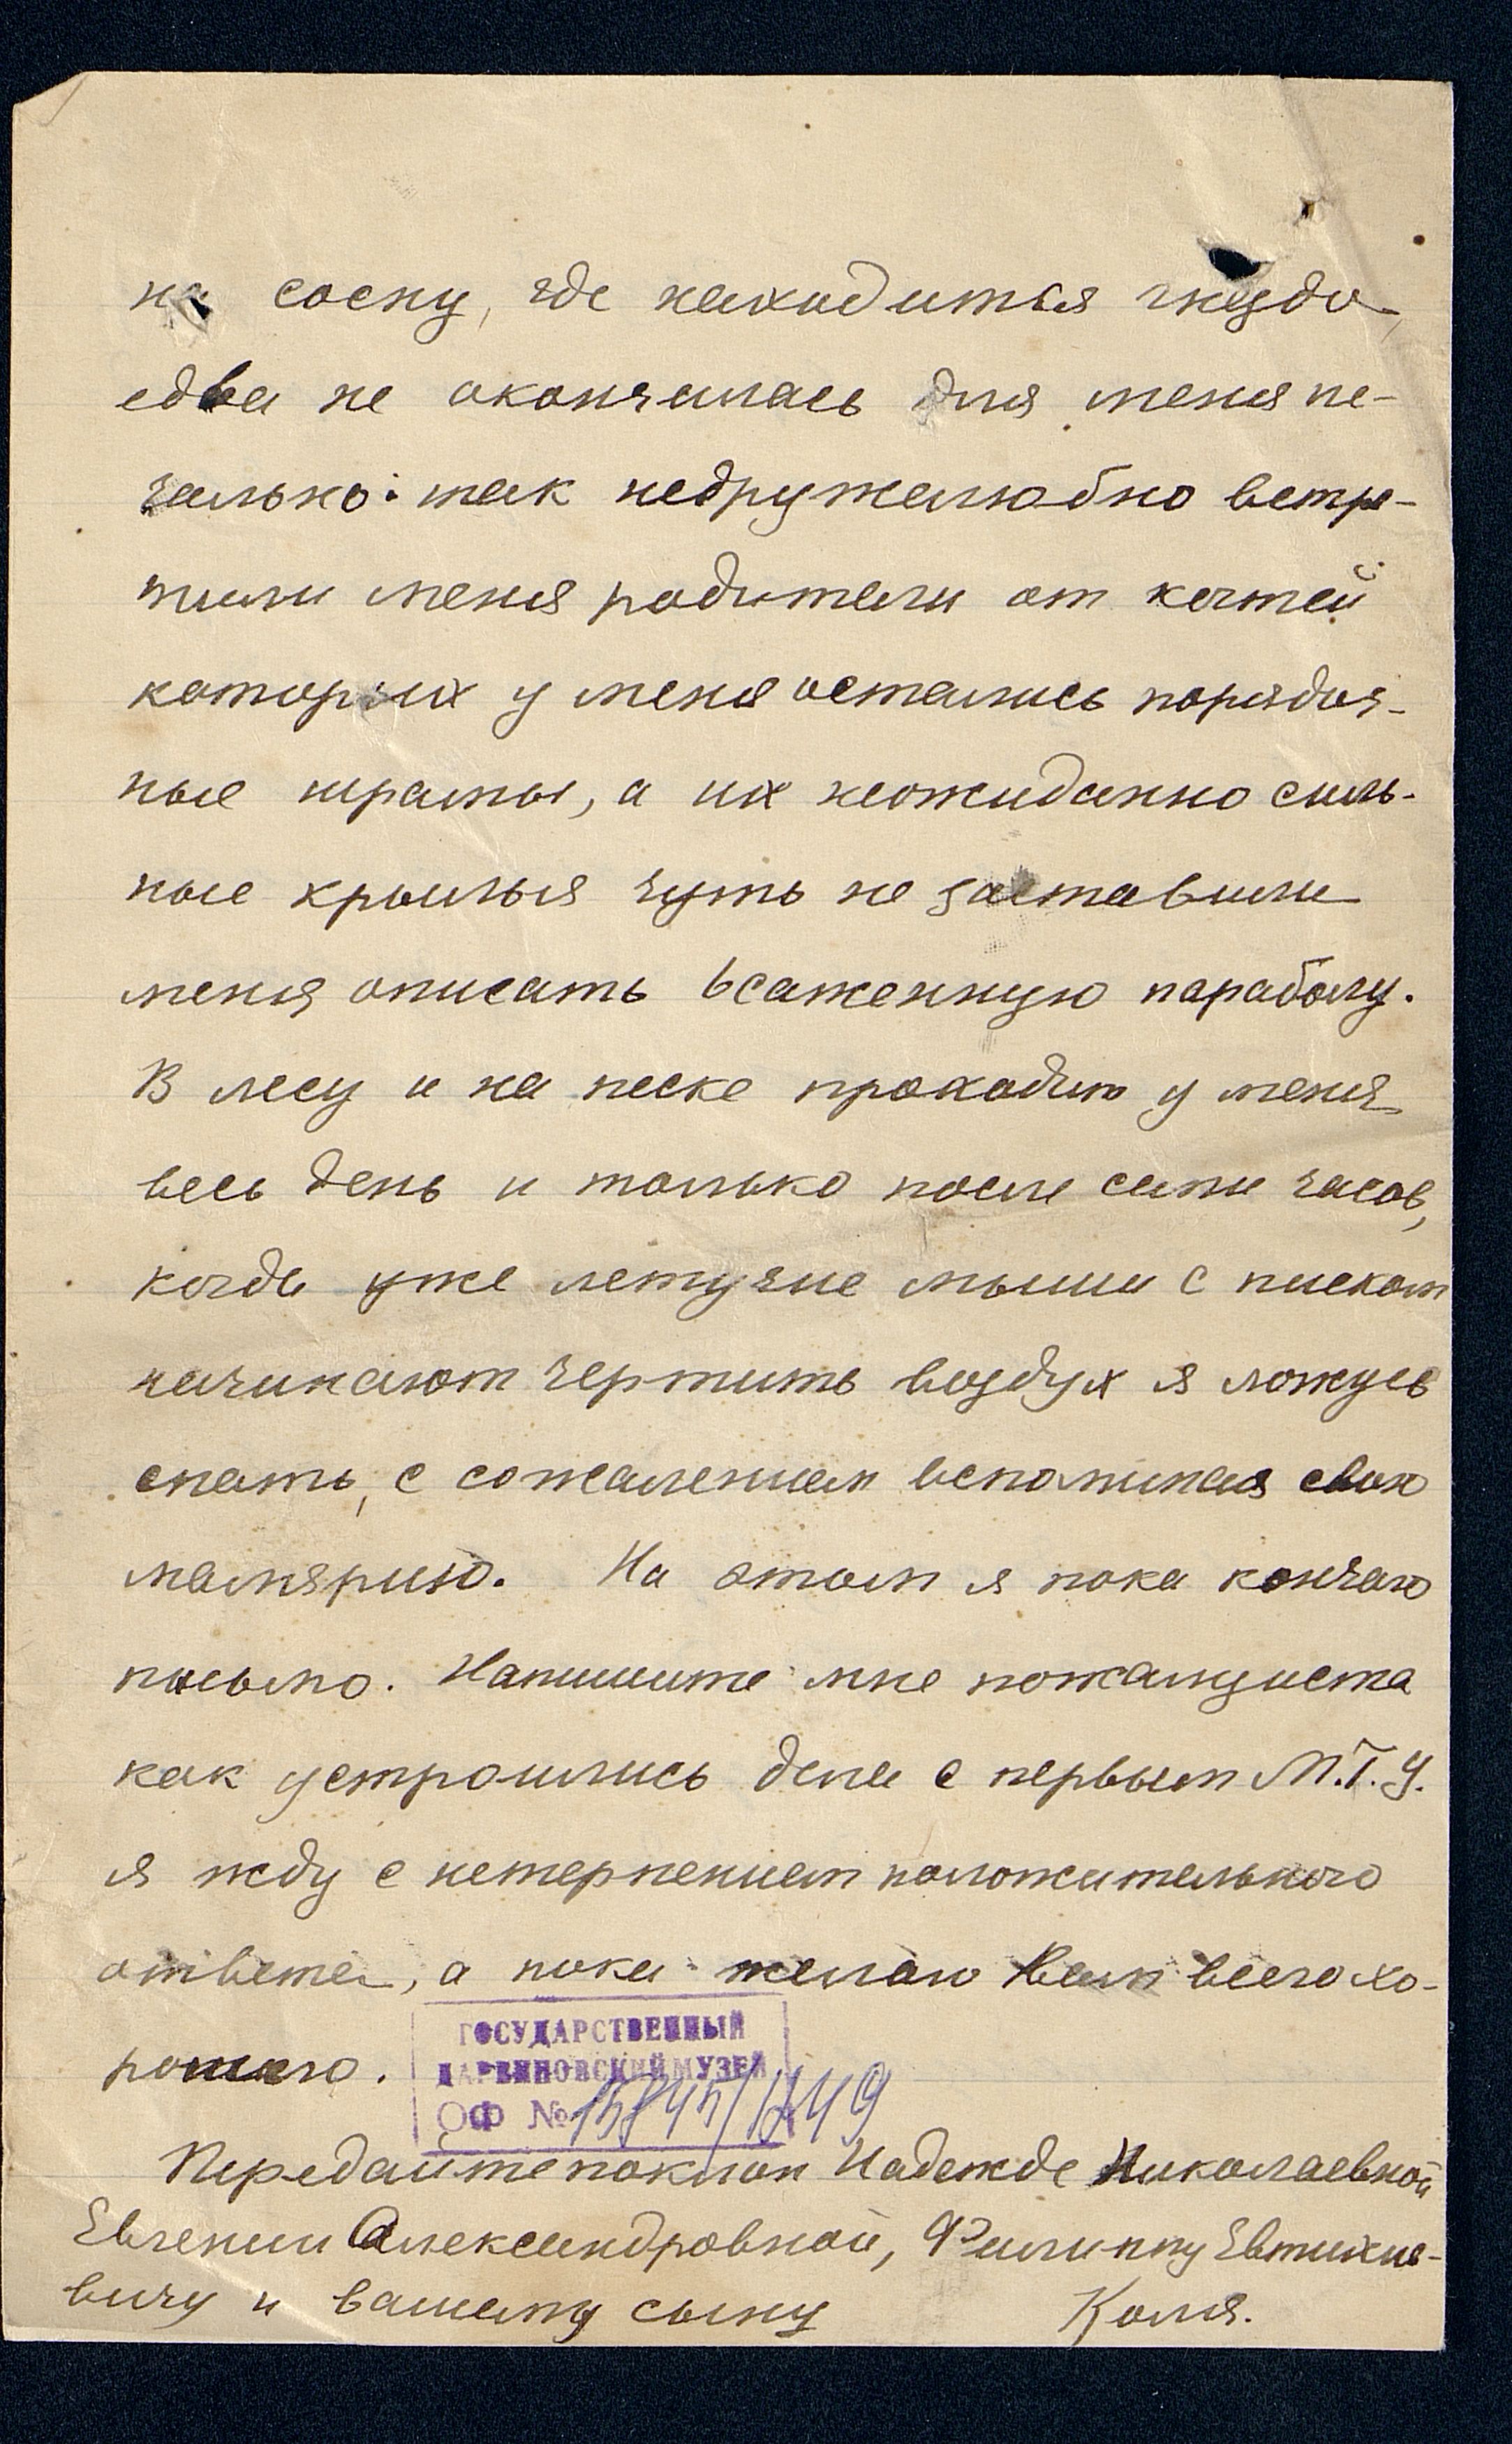 на сосну, где находиться гнездо
едва не окончилась для меня пе-
чально: так недружелюбно встре-
тили меня родители от когтей
которых у меня остались порядоч-
ные шрамы, а их неожиданно силь-
ные крылья чуть не заставили
меня описать 6саженную параболу.
В лесу и на песке проходит у меня
весь день и только после семи часов,
когда уже летучие мыши с писком
начинают чертить воздух я ложусь
спать, с сожалением вспоминая свою
малярию. На этом я пока кончаю
письмо. Напишите мне пожалуиста
как устроились дела с первым М.Г.У.
я жду с нетерпением положительного
ответа, а пока желаю Вам всего хо-
рошего.
ГОСУДАРСТВЕННЫЙ
ДАРВИНОВСКИЙ МУЗЕЙ
ОФ №
Передайте поклон Надежде Николаевной
Евгении Александровной, Филиппу Евтихие-
вичу и вашему сыну Коля.